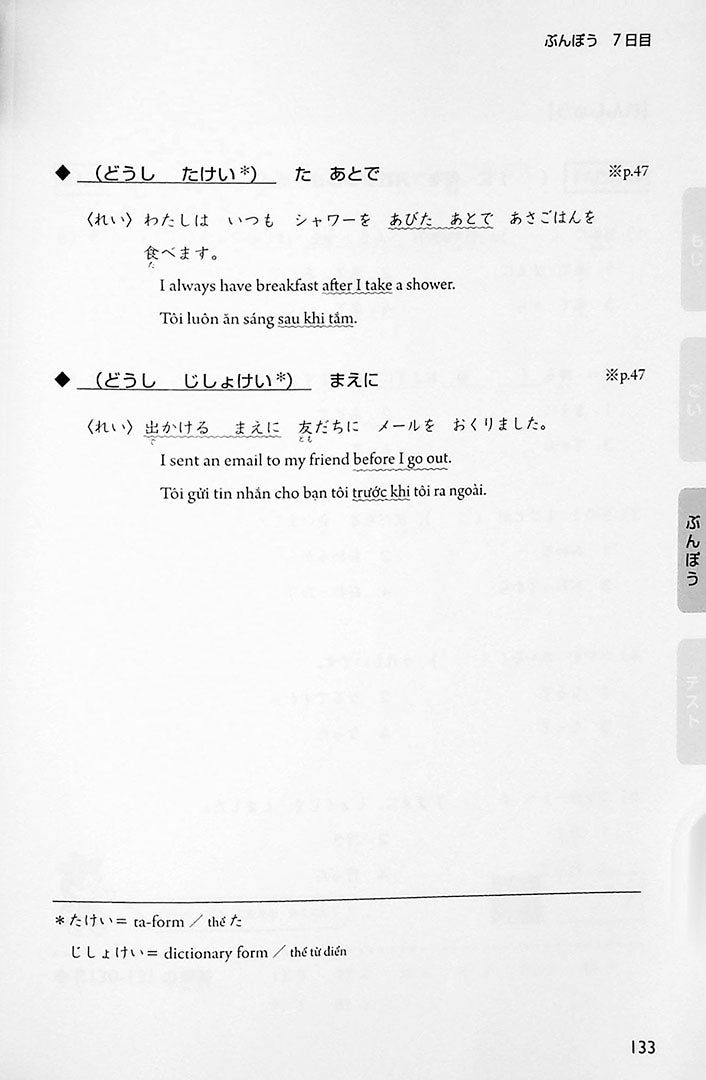 ぶんぽう 7日目
◆ (どうし たけい*) た あとで ※p.47
〈れい〉わたしは いつも シャワーを あびた あとで あさごはんを
食べます。
た
I always have breakfast after I take a shower.
Tôi luôn ăn sáng sau khi tắm.
◆ (どうし じしょけい*) まえに ※p.47
〈れい〉出かける まえに 友だちに メールを おくりました。
で とも
I sent an email to my friend before I go out.
Tôi gửi tin nhắn cho bạn tôi trước khi tôi ra ngoài.
もじ
ごい
ぶんぽう
テスト
*たけい= ta-form / thể た
じしょけい= dictionary form / thể từ điển
133